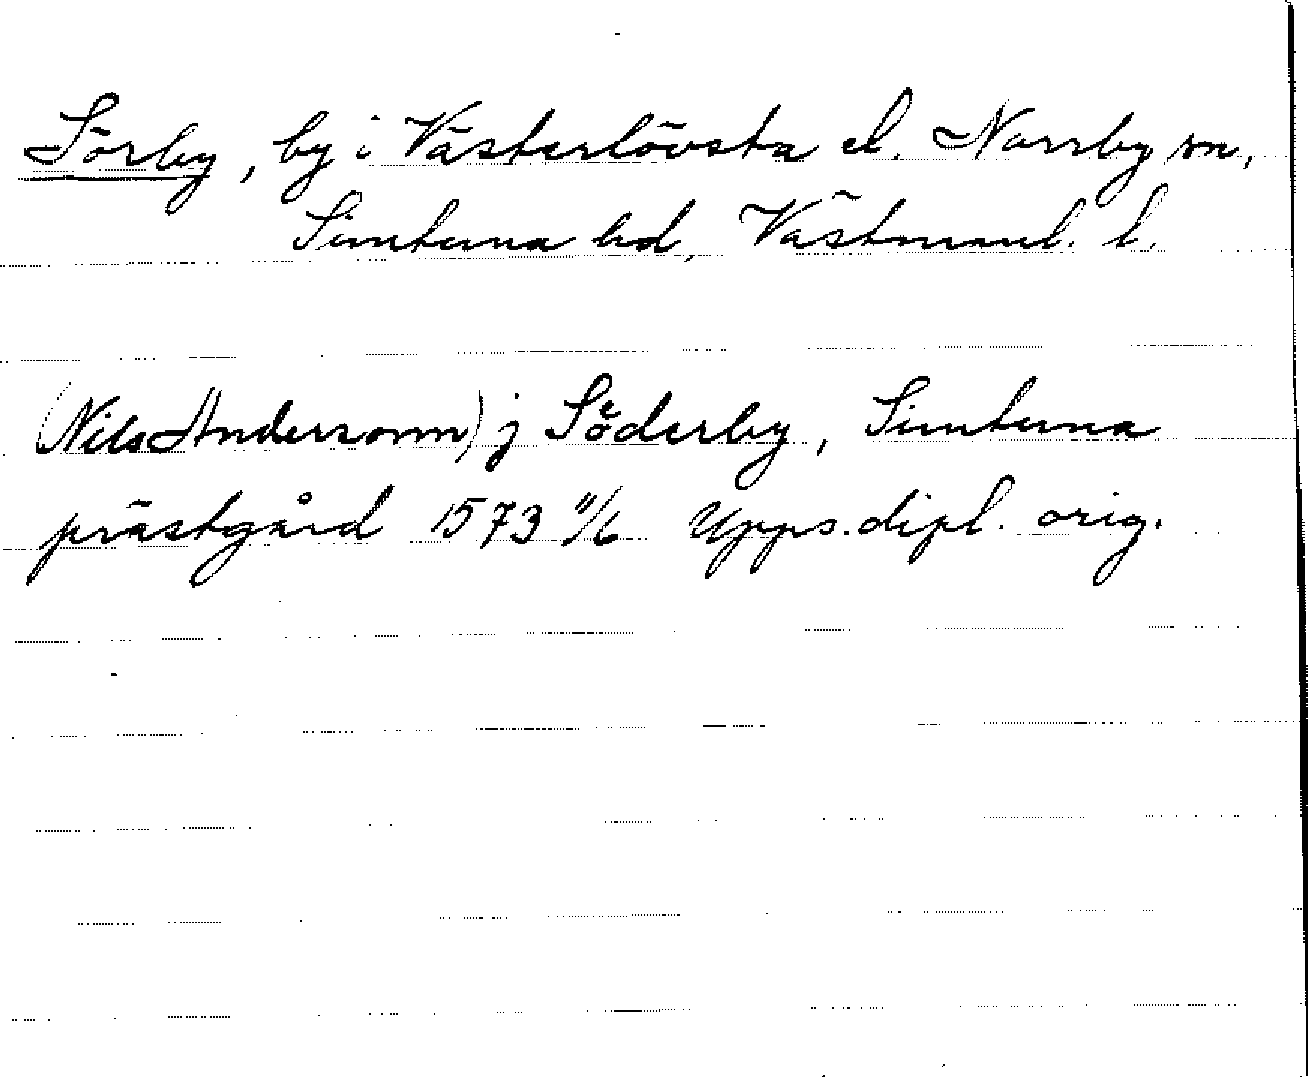 Sörby, by i Västerlövsta el. Norrby sn,
Simtuna hd, Västmanl. l.
(Nils Andersonn) j Söderby, Simtuna
prästgård 1573 11/6 Upps. dipl. orig.